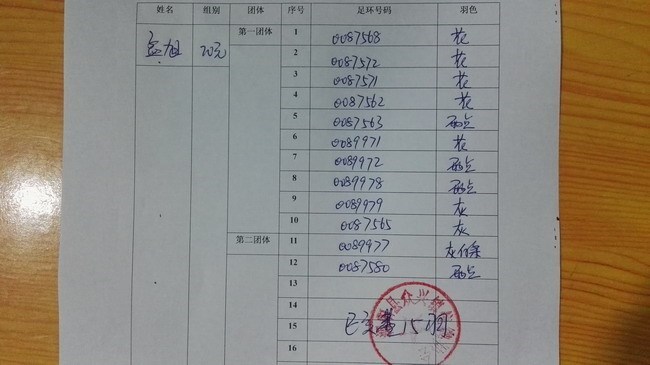 姓名 组别 团体 序号 足环号码 羽色
孟旭 20元 第一团体 1 0087568 花
2 0087572 花
3 0087571 花
4 0087562 花
5 0087563 雨点
6 0089971 花
7 0089972 雨点
8 0089978 雨点
9 0089979 灰
10 0087565 灰
第二团体 11 0089977 灰白条
12 0087580 雨点
13
14
15 15羽
16